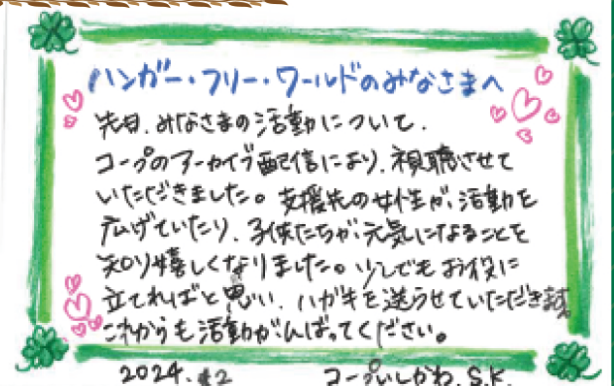 ハンガー・フリー・ワールドのみなさまへ
先日、みなさまの活動について、
コープのアーカイブ配信により、視聴させて
いただきました。支援先の女性が、活動を
広げていたり、子供たちが、元気になることを
知り嬉しくなりました。少しでもお役に
立てればと思い、ハガキを送らせていただきます。
これからも活動がんばってください。
2024.
コープいしかわ、S.K.